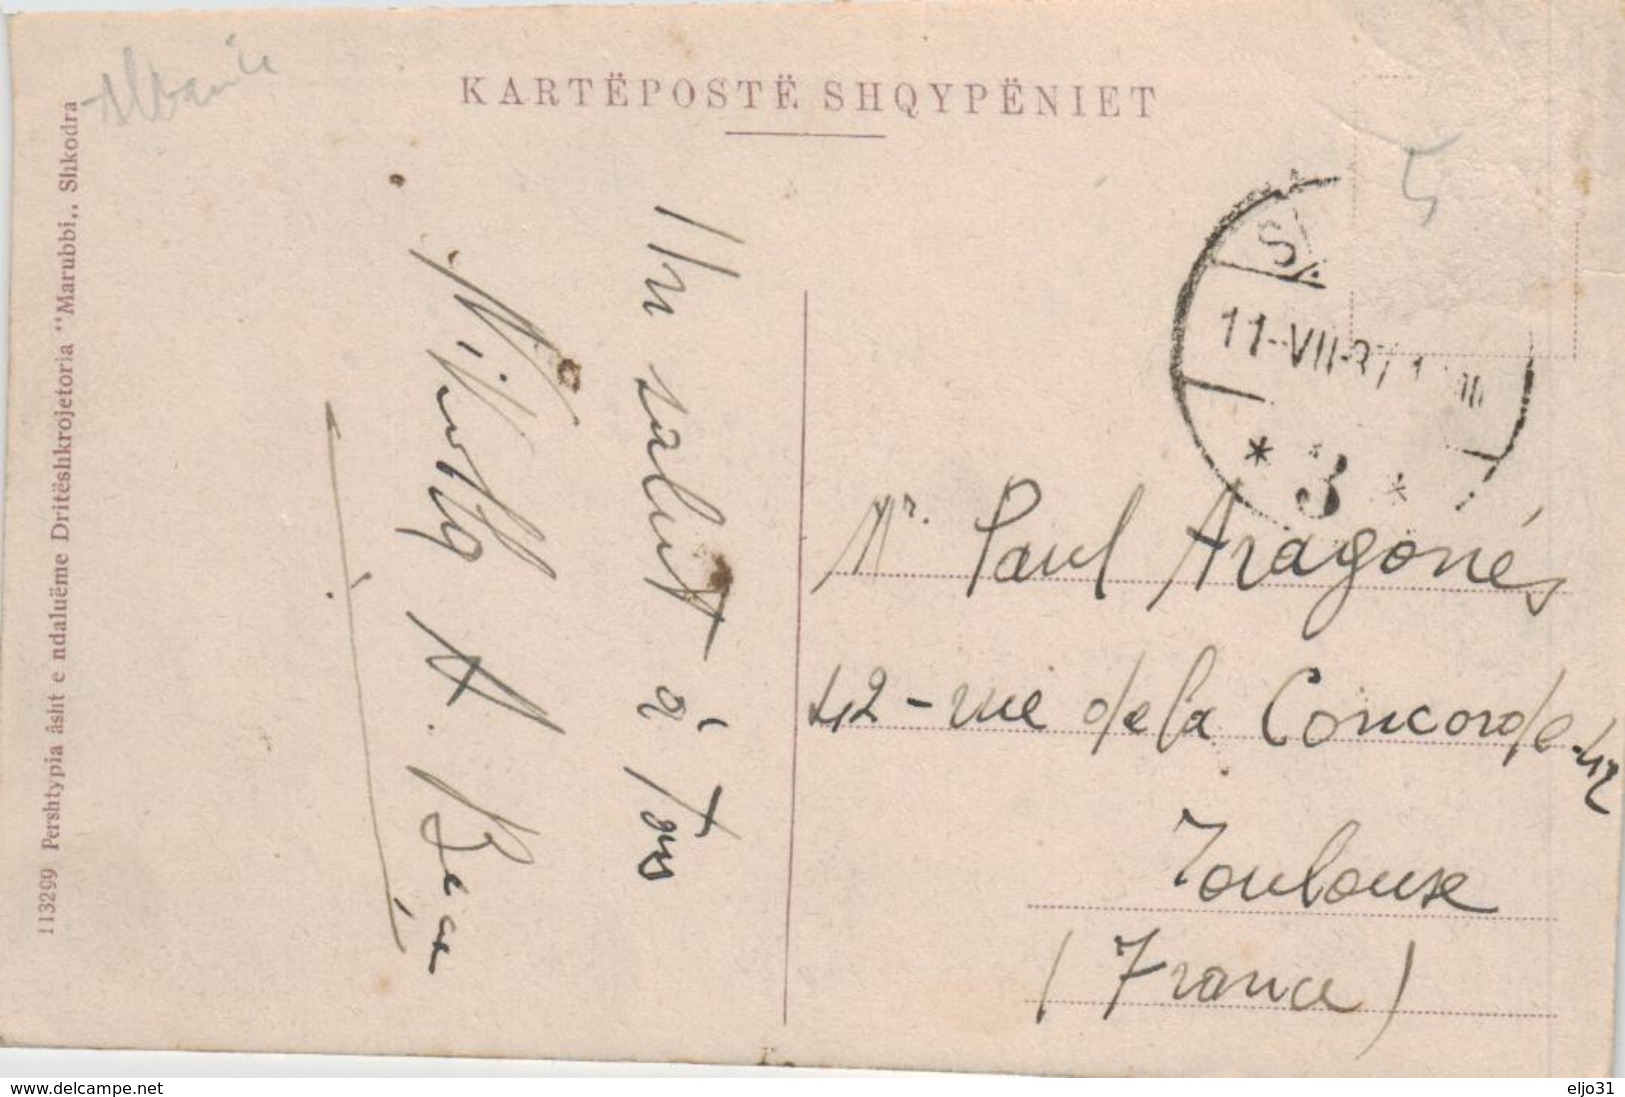 Albanie
KARTËPOSTË SHQYPËNIET
5
11-VII-37
* 3 *
Un salut à Tous
A.
Mr. Paul Aragonés
42 - rue de la Concorde - 42
Toulouse
(France)
113299 Pershtypia âsht e ndaluëme Dritëshkrojetoria "Marubbi,, Shkodra
www.delcampe.net
eljo31